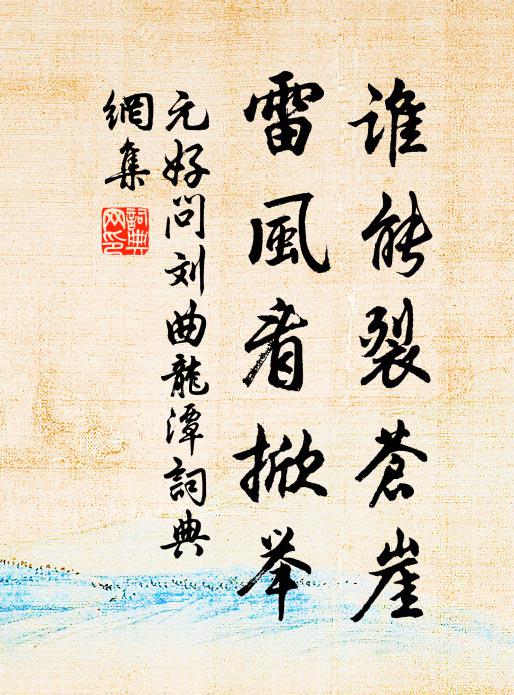 谁能裂苍崖
雷風看掀举
元好问刘曲龍潭詞典
網集
詞典网印